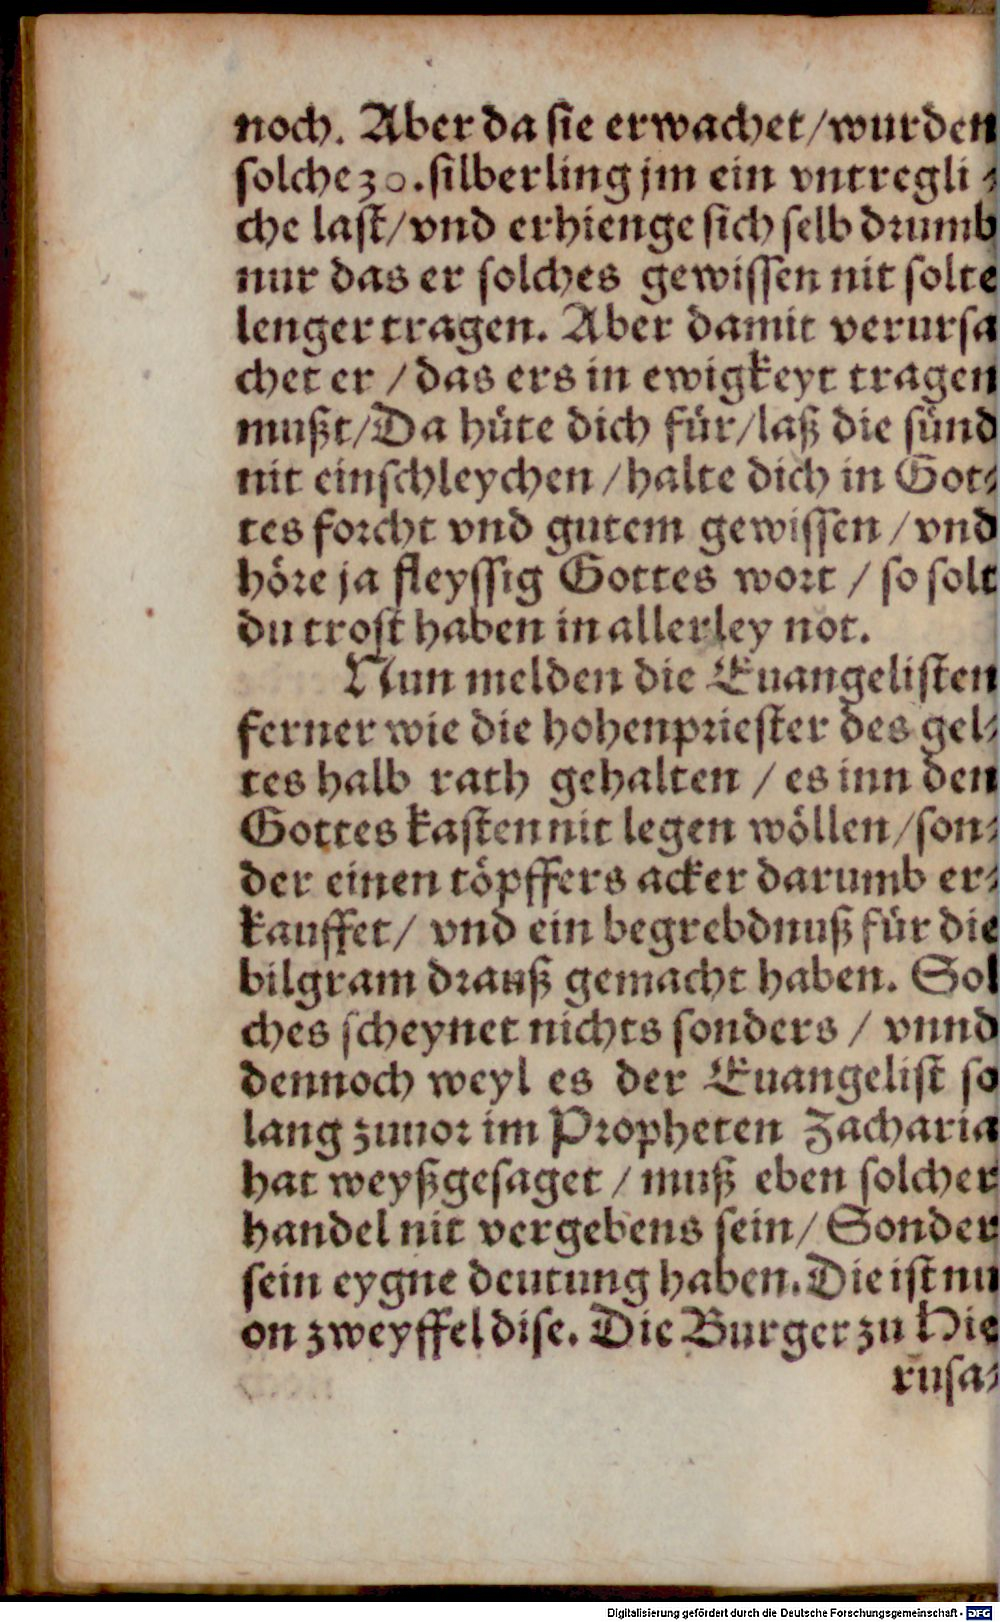 noch. Aber da sie erwachet/wurden
solche 30. silberling jm ein vntregli⸗
che last/vnd erhienge sich selb drumb
nur das er solches gewissen nit solte
lenger tragen. Aber damit verursa
chet er /das ers in ewigkeyt tragen
mußt/Da hüte dich für/laß die sünd
nit einschleychen /halte dich in Got⸗
tes forcht vnd gutem gewissen /vnd
höre ja fleyssig Gottes wort / so solt
du trost haben in allerley not.
Nun melden die Euangelisten
ferner wie die hohenpriester des gel⸗
tes halb rath gehalten / es inn den
Gottes kasten nit legen wöllen/son⸗
der einen töpffers acker darumb er⸗
kauffet/ vnd ein begrebdnuß für die
bilgram drauß gemacht haben. Sol
ches scheynet nichts sonders / vnnd
dennoch weyl es der Euangelist so
lang zuuor im Propheten Zacharia
hat weyßgesaget / muß eben solcher
handel nit vergebens sein/ Sonder
sein eygne deutung haben. Die ist nu
on zweyffel dise. Die Burger zu Hie
rusa⸗
Digitalisierung gefördert durch die Deutsche Forschungsgemeinschaft - DFG